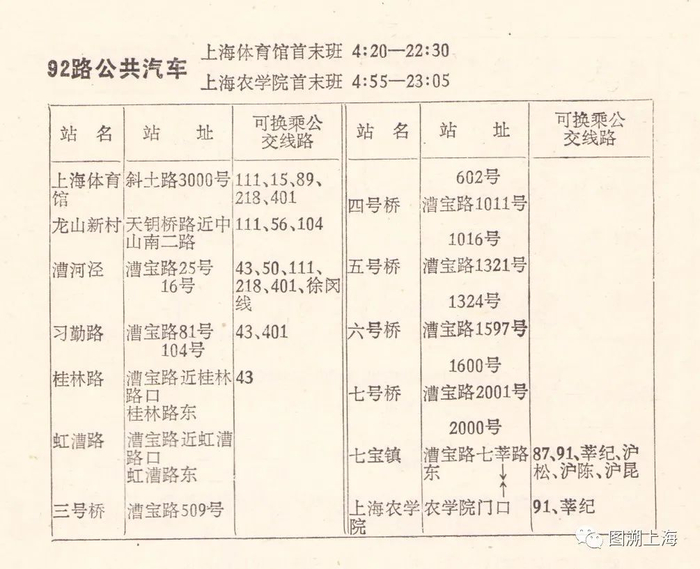 92路公共汽车
上海体育馆首末班 4:20—22:30
上海农学院首末班 4:55—23:05
站 名 站 址 可换乘公
交线路
上海体育 斜土路3000号 111、15、89、
馆 218、401
龙山新村 天钥桥路近中 111、56、104
山南二路
漕河泾 漕宝路25号 43、50、111、
16号 218、401、徐闵
线
习勤路 漕宝路81号 43、401
104号
桂林路 漕宝路近桂林 43
路口
桂林路东
虹漕路 漕宝路近虹漕
路口
虹漕路东
三号桥 漕宝路509号
站 名 站 址 可换乘公
交线路
602号
四号桥 漕宝路1011号
1016号
五号桥 漕宝路1321号
1324号
六号桥 漕宝路1597号
1600号
七号桥 漕宝路2001号
2000号
七宝镇 漕宝路七莘路 87、91、莘纪、沪
东 松、沪陈、沪昆
上海农学 农学院门口 91、莘纪
院
图溯上海